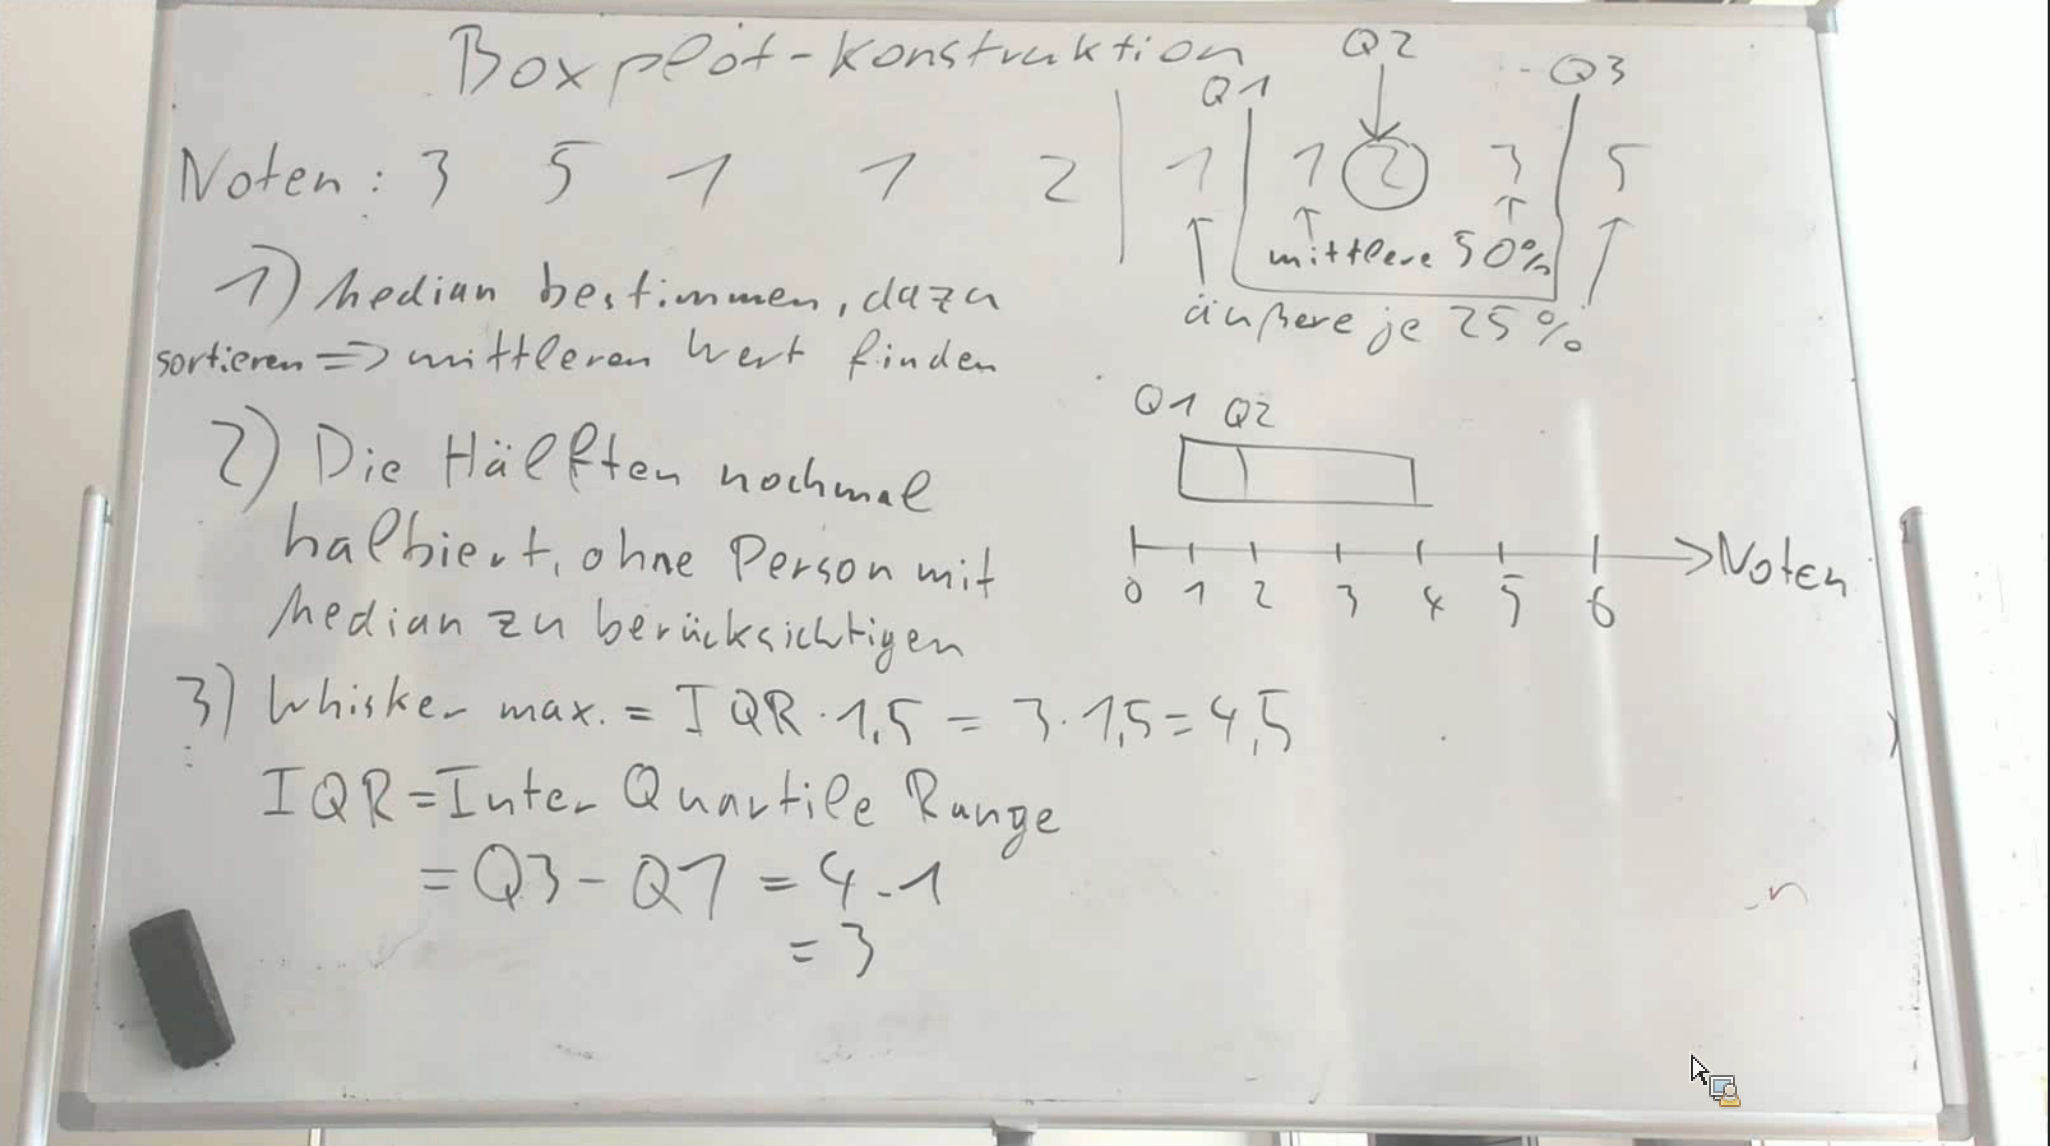 Boxplot-Konstruktion
Noten: 3 5 1 1 2
Q1 Q2 Q3
1 1 2 3 5
mittlere 50%
äußere je 25%
1) Median bestimmen, dazu
sortieren => mittleren Wert finden
2) Die Hälften nochmal
halbiert, ohne Person mit
Median zu berücksichtigen
Q1 Q2
0 1 2 3 4 5 6
Noten
3) Whisker max. = IQR · 1,5 = 3 · 1,5 = 4,5
IQR = Inter Quartile Range
= Q3 - Q1 = 4 - 1
= 3